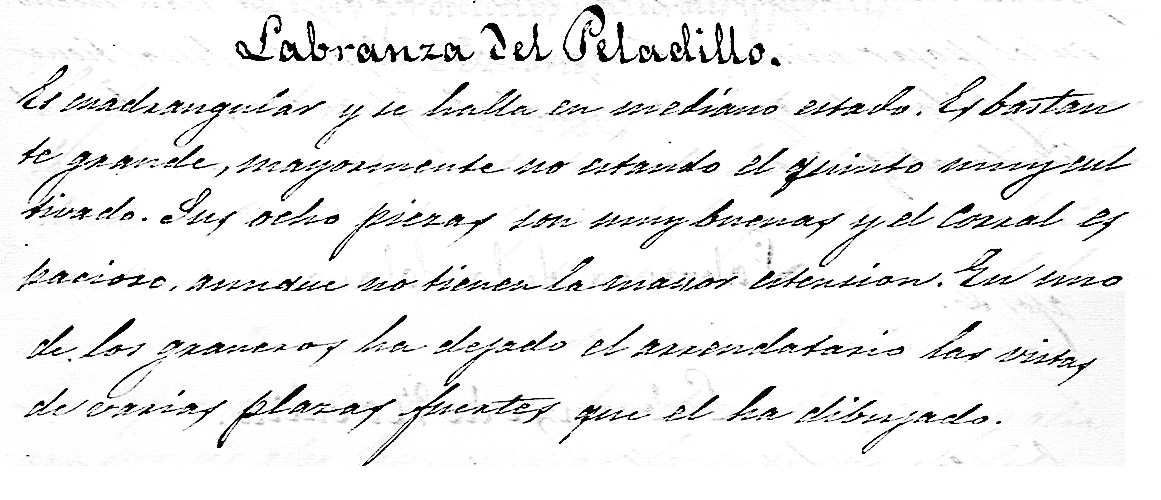 Labranza del Peladillo.
Es cuadrangular y se halla en mediano estado. Es bastan
te grande, mayormente no estando el quinto muy cul
tivado. Sus ocho piezas son muy buenas y el corral es
pacioso, aunque no tienen la mayor estension. En uno
de los graneros ha dejado el arrendatario las vistas
de varias plazas fuertes que el ha dibujado.